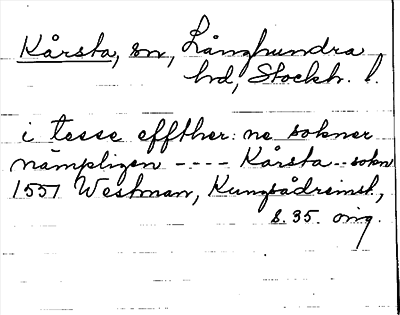 Kårsta, sn, Långhundra
hd, Stockh. l.
i tesse effther: ne sokner
nämpligen ---- Kårsta -- sokn
1551 Westman, Kungsådreinst.,
s. 35. orig.